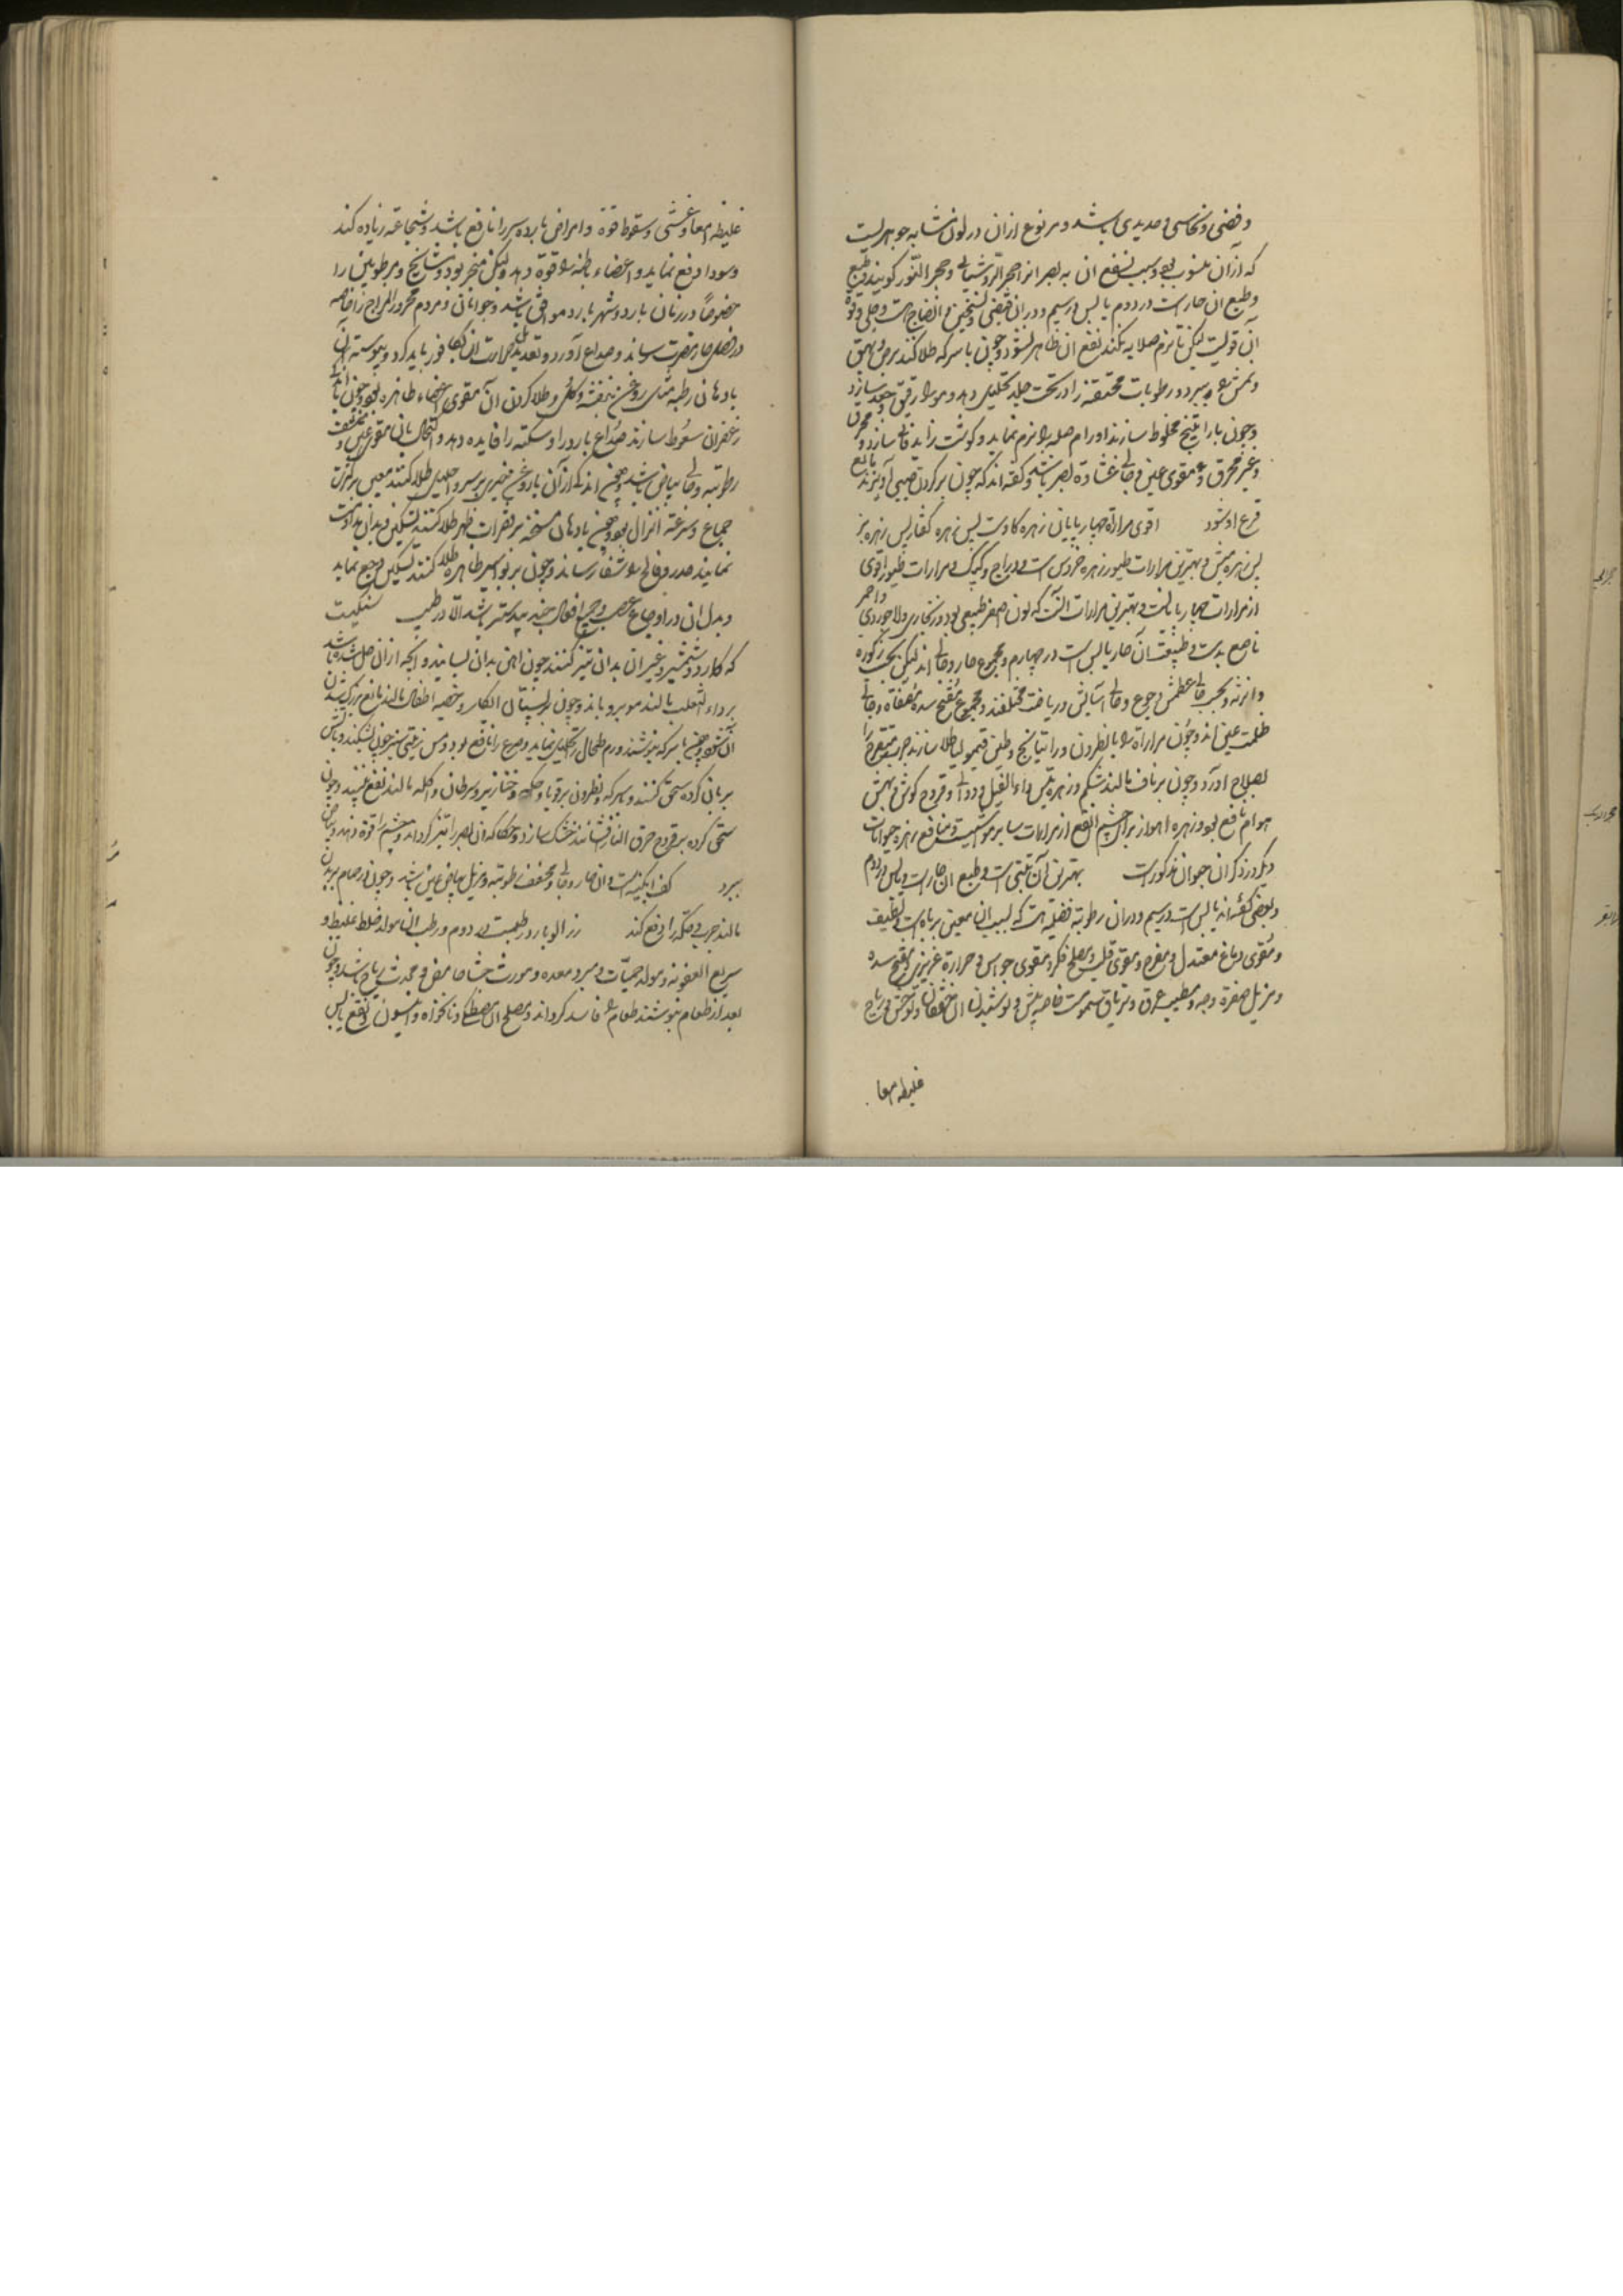 و فضی و نحاسی و حدیدی باشد و هر نوع ازان در لون مشابه جوهریست
که ازان منسوب بود و بسبب نفع ان به بصر انرا حجر الروشنایی و حجر النور کویند
و طبع ان حار است در دوم یابس در سیم و دران قبض و تسخین و انضاج است و جلی و قوة
آن قویست لیکن تا نرم صلایه نکنند نفع ان ظاهر نشود و چون با سرکه طلا کنند برص و بهق
و نمش ببرد و رطوبات محتقنه را در تحت جلد تحلیل دهد و مو را رقیق و جعد سازد
و چون با راتینج مخلوط سازند اورام صلبه را نرم نماید و کوشت زاید فانی سازد و محرق
و غیر محرق مقوی عین و جالی غشاوة بصر باشد و کفته اند که چون بر کردن صبی آویزند مانع
فزع او شود اقوی مرارة چهارپایان زهره کاوست پس زهره کفتار پس زهره بز
پس زهره میش و بهترین مرارات طیور زهره خروس است و دراج و کبک و مرارات طیور اقوی
از مرارات چهارپایانست و بهترین مرارات انست که لون اصفر طبیعی بود و زنکاری و لاجوردی و احمر
ناصع بدست و طبیعت ان حار یابس است در چهارم و مجموع حار و جالی اند لیکن بحسب ذکوره
و انوثه و بحسب حالی عطش و جوع و حالی آسایش و ریاضت مختلفند و مجموع مفتح سده مصفاة و جالی
ظلمت عین اند و چون مراراة را با نطرون و راتیانج و طین قیمولیا طلا سازند جرب متقرح را
بصلاح اورد و چون بر ناف مالند شکم و زهره تیس داء الفیل و دوالی و قروح کوش و نهش
هوام نافع بود و زهره اهو از برای چشم انفع از مرارات سایر مواشیست و منافع زهره حیوانات
دیکر در ذکر ان حیوان مذکورست بهترین آن تبتی است و طبع ان حار است و یابس در دوم
و بعضی کفته اند یابس است در سیم و دران رطوبة فضلیه است که بسبب ان معین بر باه است و لطیف
و مقوی دماغ معتدل و مفرح و مقوی قلب و مصلح فکر و مقوی حواس و حرارة غریزی و مفتح سده
و مزیل صفرة وجه و مطیب عرق و تریاق سموم است خاصه بیش و نوشیدن ان خفقان و توحش و ریاح
غلیظه امعا
غلیظه امعا و غشی و سقوط قوة و امراض بارده سر را نافع باشد و شجاعة زیاده کند
و سودا دفع نماید و اعضاء باطنه را قوة دهد و لیکن مبخر بود و مشایخ و مرطوبین را
خصوصا در زمان بارد و شهر بارد موافق باشد و جوانان و مردم محرور المزاج را خاصه
در فصل حار مضرت رساند و صداع آورد و تعدیل حرارت ان بکافور باید کرد و یبوسته ان
بادهان رطبه مثل روغن بنفشه و کل و طلا کردن ان مقوی اعضاء ظاهره بود و چون با
زعفران سعوط سازند صداع بارد را و سکته را فایده دهد و اکتحال بان مقوی عین و منشف
رطوبته و جالی بیاض باشد و چون اندکی ازان با روغن خیری بر سر احلیل طلا کنند معین بر کثرت
جماع و سرعة انزال بود و چون با دهان مسخنه بر فقرات ظهر طلا کنند و بدان مداومت
نمایند خدر و فالج را شفا رساند و چون بر بواسیر ظاهره طلا کنند تسکین وجع نماید
و بدل ان در اوجاع عصب و جمیع افعال جند بیدستر باشد الا در طیب سنکیست
که کارد و شمشیر و غیر ان بدان تیز کنند چون اهن بدان بسایند و انچه ازان حل شده باشد
بر داء الثعلب مالند مو برویاند و چون بر پستان ابکار و خصیه اطفال مالند مانع بزرک شدن
ان شود و چون با سرکه بنوشند ورم طحال را تحلیل نماید و صرع را نافع بود و مسن زیتی سبز چون بشکنند و باتش
بریان کرده سحق کنند و سرکه و نطرون بر قوبا و حکه و خنازیر و سرطان و اکله مالند نفع بخشد و چون
سحق کرده بر قروح حرق النار فشانند خشک سازد و حکاکه ان بصر را تیز کرداند و چشم را قوة دهد و بیاض
ببرد کف ابکینه است و ان حار و جالی و مجفف رطوبته و مزیل بیاض عین باشد و چون در حمام بر بدن
مالند جرب و حکه را دفع کند زردالو بارد و رطبست در دوم و رطب ان مولد خلط غلیظ و
سریع العفونه و مولد حمیات و مبرد معده و مورث جشا حامض و محدث ریاح باشد و چون
بعد از طعام بنوشند طعام را فاسد کرداند و مصلح ان مصطکی و نانخواه و انیسون و نقیع یابس